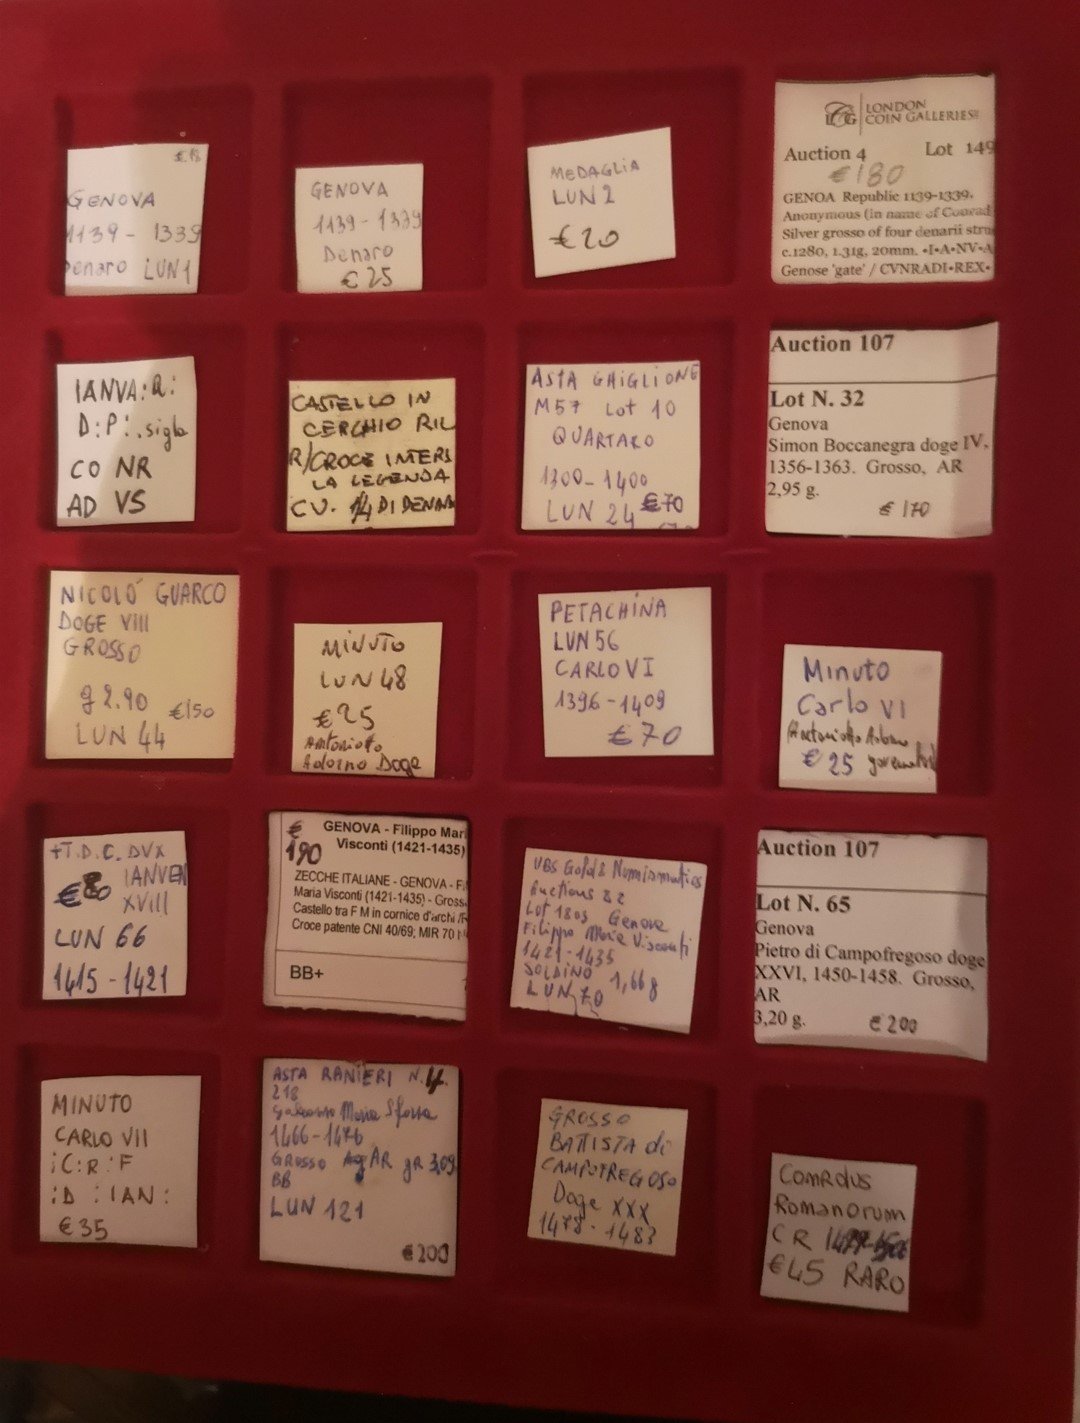 GENOVA
1139 - 1339
Denaro LUN 1
GENOVA
1139 - 1339
Denaro
€ 25
MEDAGLIA
LUN 2
€ 20
LONDON
COIN GALLERIES
Auction 4 Lot 149
€180
GENOA Republic 1139-1339.
Anonymous (in name of Conrad
Silver grosso of four denarii stru
c.1280, 1.31g, 20mm. •I•A•NV•A
Genose 'gate' / CVNRADI•REX•
IANVA:Q:
D:P:.sigla
CO NR
AD VS
CASTELLO IN
CERCHIO RIL
R/CROCE INTERS
LA LEGENDA
CU. 1/4 DI DENAR
ASTA GHIGLIONE
M57 Lot 10
QUARTARO
1300-1400
LUN 24 €70
Auction 107
Lot N. 32
Genova
Simon Boccanegra doge IV,
1356-1363. Grosso, AR
2,95 g.
€ 170
NICOLO' GUARCO
DOGE VIII
GROSSO
g 2.90 €150
LUN 44
MINUTO
LUN 48
€25
Antoniotto
Adorno Doge
PETACHINA
LUN 56
CARLO VI
1396-1409
€ 70
Minuto
Carlo VI
Antoniotto Adorno
€ 25
+T.D.C. DVX
€80 IANVEN
XVIII
LUN 66
1415 - 1421
€
190
GENOVA - Filippo Mari
Visconti (1421-1435)
ZECCHE ITALIANE - GENOVA - Fi
Maria Visconti (1421-1435) - Gross
Castello tra F M in cornice d'archi /R
Croce patente CNI 40/69; MIR 70
BB+
UBS Gold & Numismatics
Auctions 82
Lot 1803 Genova
Filippo Maria Visconti
1421-1435
SOLDINO 1,66g
LUN 70
Auction 107
Lot N. 65
Genova
Pietro di Campofregoso doge
XXVI, 1450-1458. Grosso,
AR
3,20 g. €200
MINUTO
CARLO VII
:C:R:F
:D:IAN:
€35
ASTA RANIERI N.4
218
Galeazzo Maria Sforza
1466-1476
GROSSO AR gR 3,09
BB
LUN 121
€200
GROSSO
BATTISTA di
CAMPOFREGOSO
Doge XXX
1478-1483
ComRdus
Romanorum
CR
€45 RARO